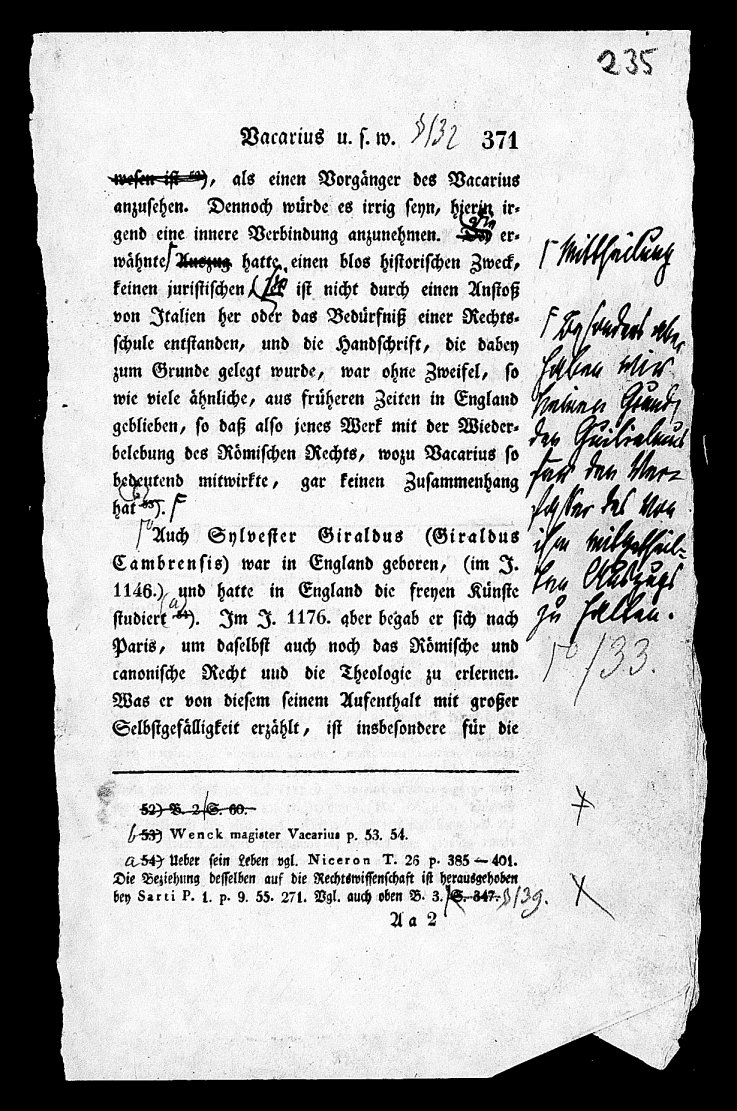 235
Vacarius u. s. w. § 132 371
wesen ist 52), als einen Vorgänger des Vacarius
anzusehen. Dennoch würde es irrig seyn, hierin ir-
gend eine innere Verbindung anzunehmen. Die er-
wähnte Auszug hatte einen blos historischen Zweck,
keinen juristischen, sie ist nicht durch einen Anstoß
von Italien her oder das Bedürfniß einer Rechts-
schule entstanden, und die Handschrift, die dabey
zum Grunde gelegt wurde, war ohne Zweifel, so
wie viele ähnliche, aus früheren Zeiten in England
geblieben, so daß also jenes Werk mit der Wieder-
belebung des Römischen Rechts, wozu Vacarius so
bedeutend mitwirkte, gar keinen Zusammenhang
hat (b) 53).
Auch Sylvester Giraldus (Giraldus
Cambrensis) war in England geboren, (im J.
1146.) und hatte in England die freyen Künste
studiert (a) 54). Im J. 1176. aber begab er sich nach
Paris, um daselbst auch noch das Römische und
canonische Recht und die Theologie zu erlernen.
Was er von diesem seinem Aufenthalt mit großer
Selbstgefälligkeit erzählt, ist insbesondere für die
Mittheilung
Besonders aber
haben wir
keinen Grund,
den Guilielmus
für den Ver-
fasser des von
ihm mitgetheil-
ten Auszugs
zu halten.
133.
52) B. 2 S. 60.
b 53) Wenck magister Vacarius p. 53. 54.
a 54) Ueber sein Leben vgl. Niceron T. 26 p. 385—401.
Die Beziehung desselben auf die Rechtswissenschaft ist herausgehoben
bey Sarti P. 1. p. 9. 55. 271. Vgl. auch oben B. 3. S. 347. § 139.
Aa 2